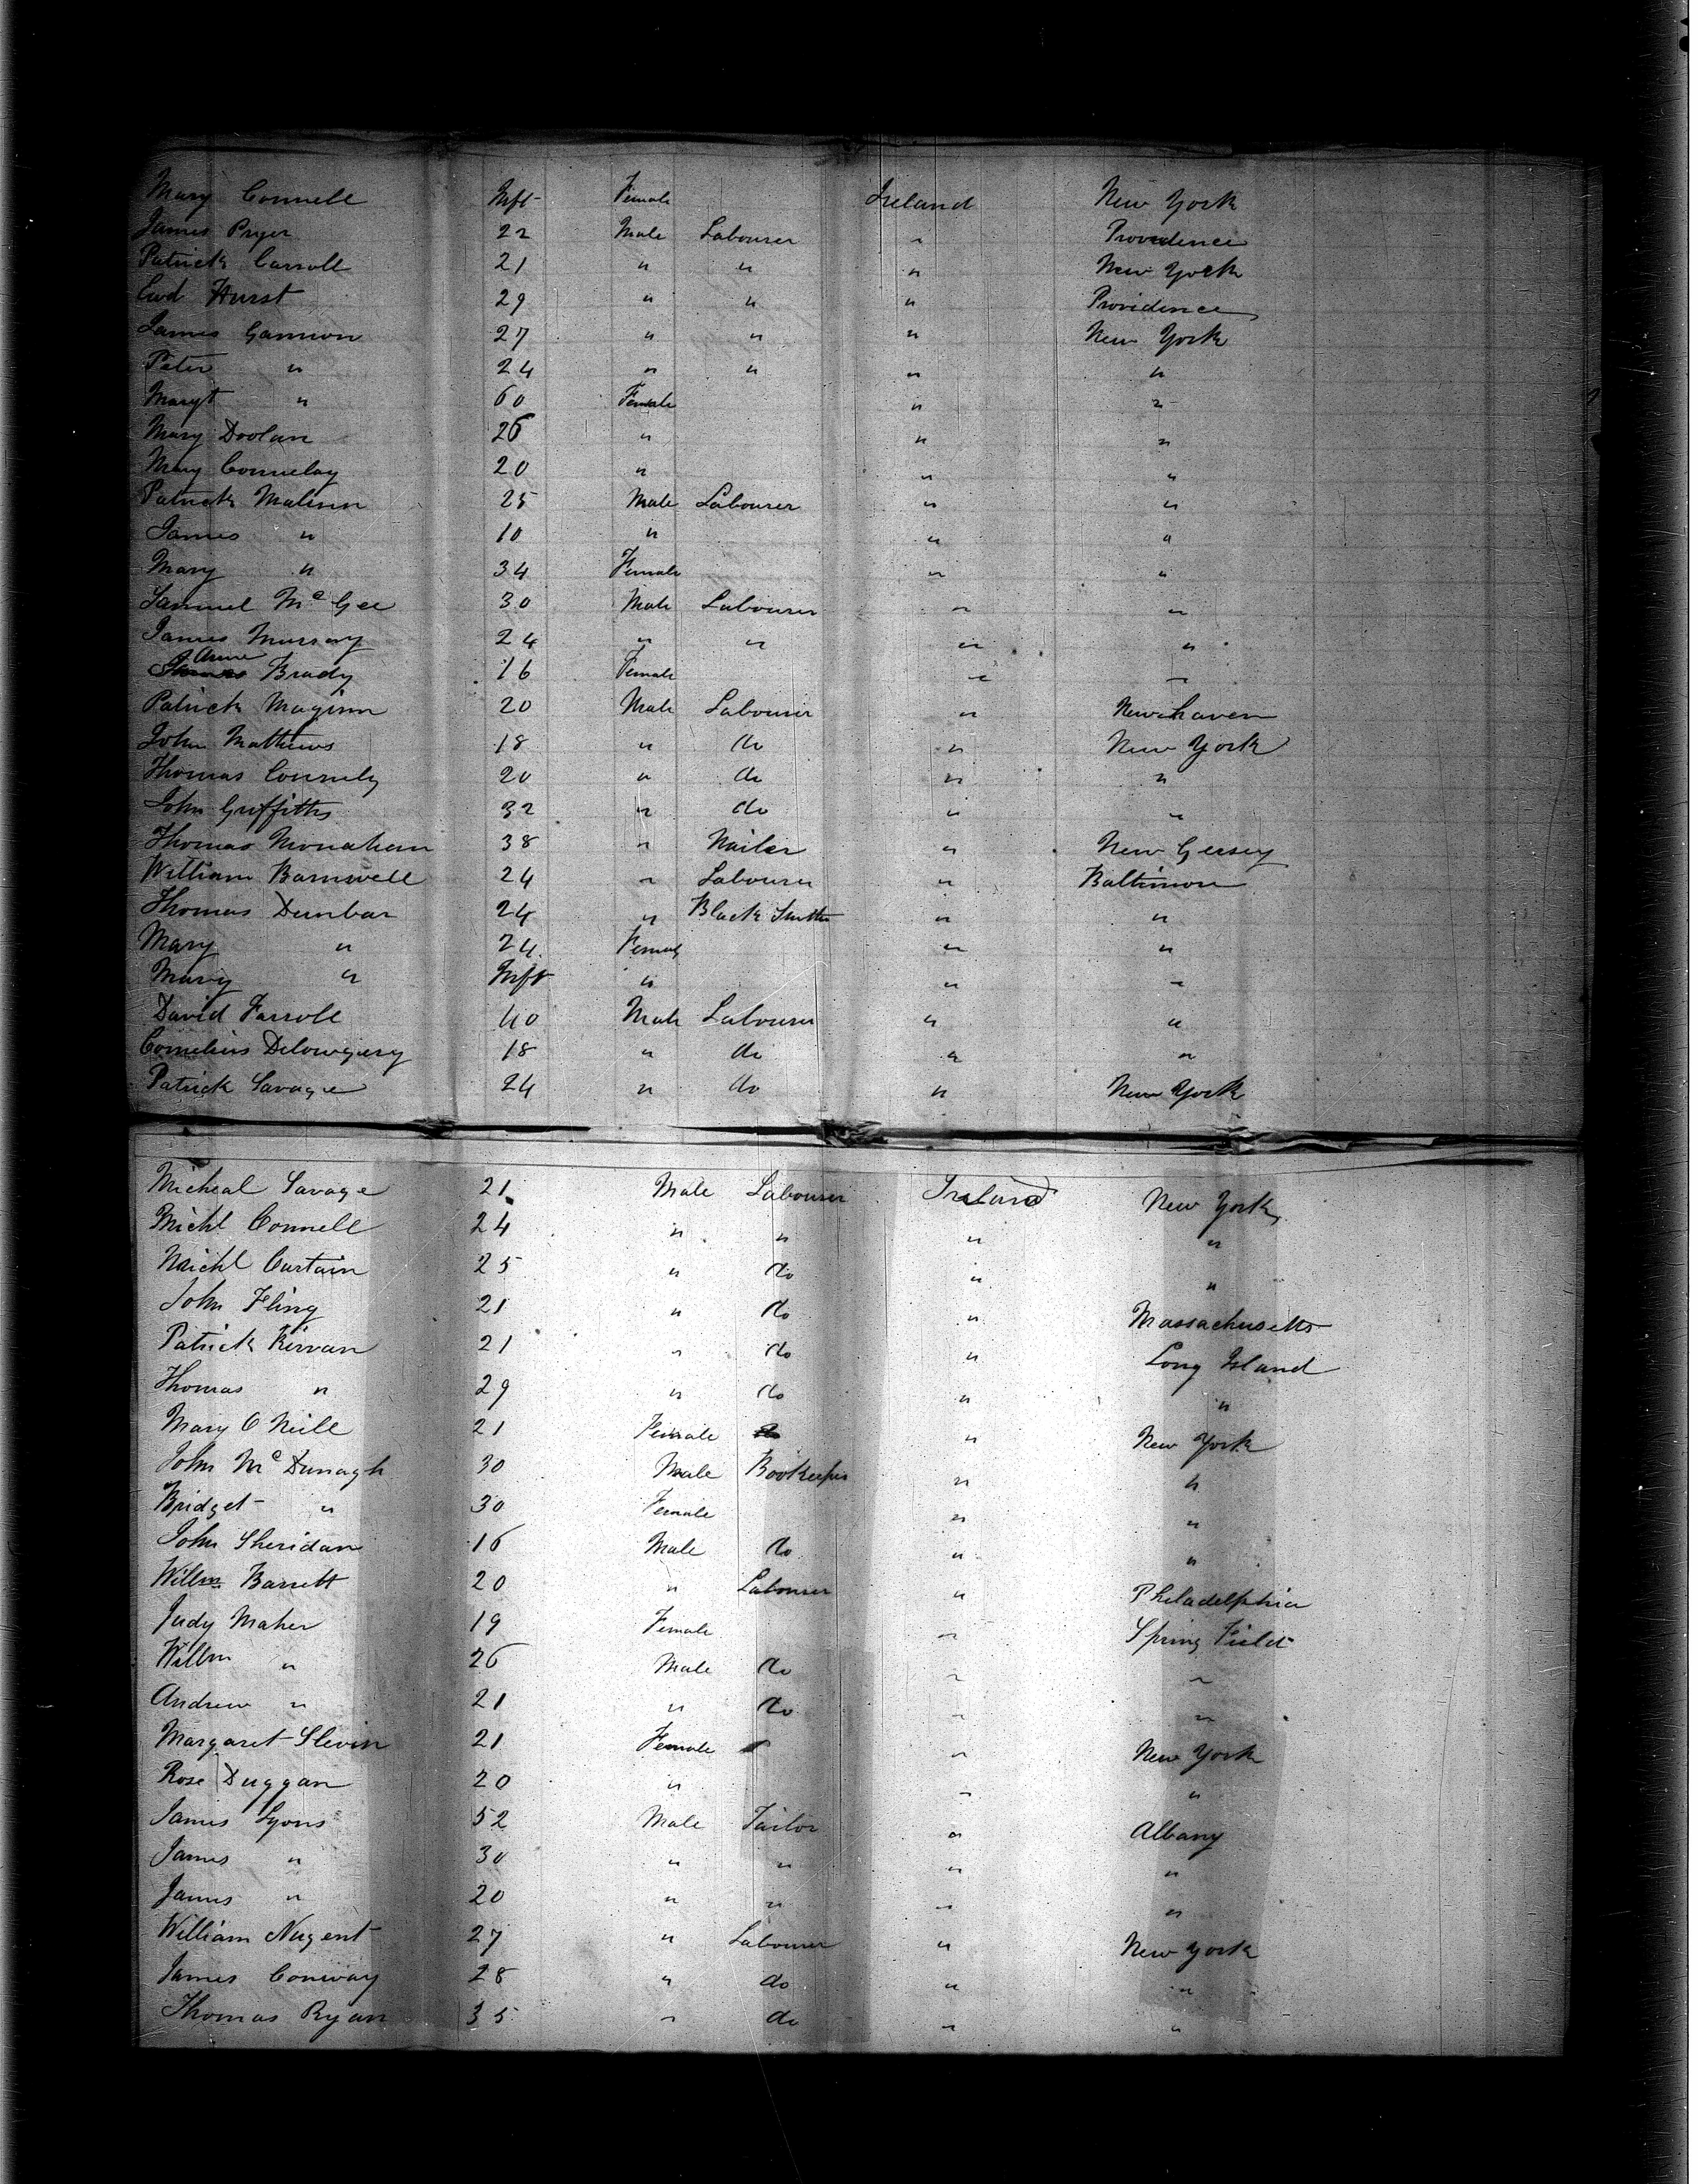 Mary Connell Inft Female Ireland New York
James Pryer 22 Male Labourer " Providence
Patrick Carroll 21 " " " New York
Ewd Hurst 29 " " " Providence
James Gannon 27 " " " New York
Peter " 24 " " " "
Margt " 60 Female " "
Mary Doolan 26 " " "
Mary Connelay 20 " " "
Patrick Malinn 25 Male Labourer " "
James " 10 " " "
Mary " 34 Female " "
Samuel McGee 30 Male Labourer " "
James Murray 24 " " " "
Anne Brady 16 Female " "
Patrick Maginn 20 Male Labourer " Newhaven
John Mathews 18 " do " New York
Thomas Connely 20 " do " "
John Griffiths 32 " do " "
Thomas Monahan 38 " Nailer " New Gersey
William Barnwell 24 " Labourer " Baltimore
Thomas Dunbar 24 " Black Smith " "
Mary " 24 Female " "
Mary " Inft " " "
David Farroll 40 Male Labourer " "
Cornelius Delowgery 18 " do " "
Patrick Savage 24 " do " New York
Micheal Savage 21 Male Labourer Ireland New York
Michl Connell 24 " " " "
Michl Curtain 25 " do " "
John Fling 21 " do " Massachusetts
Patrick Kirvan 21 " do " Long Island
Thomas " 29 " do " "
Mary O Neill 21 Female " New York
John McDunagh 30 Male Bookeeper " "
Bridget " 30 Female " "
John Sheridan 16 Male do " "
Willm Barrett 20 " Labourer " Philadelphia
Judy Maher 19 Female " Spring Field
Willm " 26 Male do " "
Andrew " 21 " do " "
Margaret Slevin 21 Female " New York
Rose Duggan 20 " " "
James Lyons 52 Male Tailor " Albany
James " 30 " " " "
James " 20 " " " "
William Nugent 27 " Labourer " New York
James Conway 28 " do " "
Thomas Ryan 35 " do " "